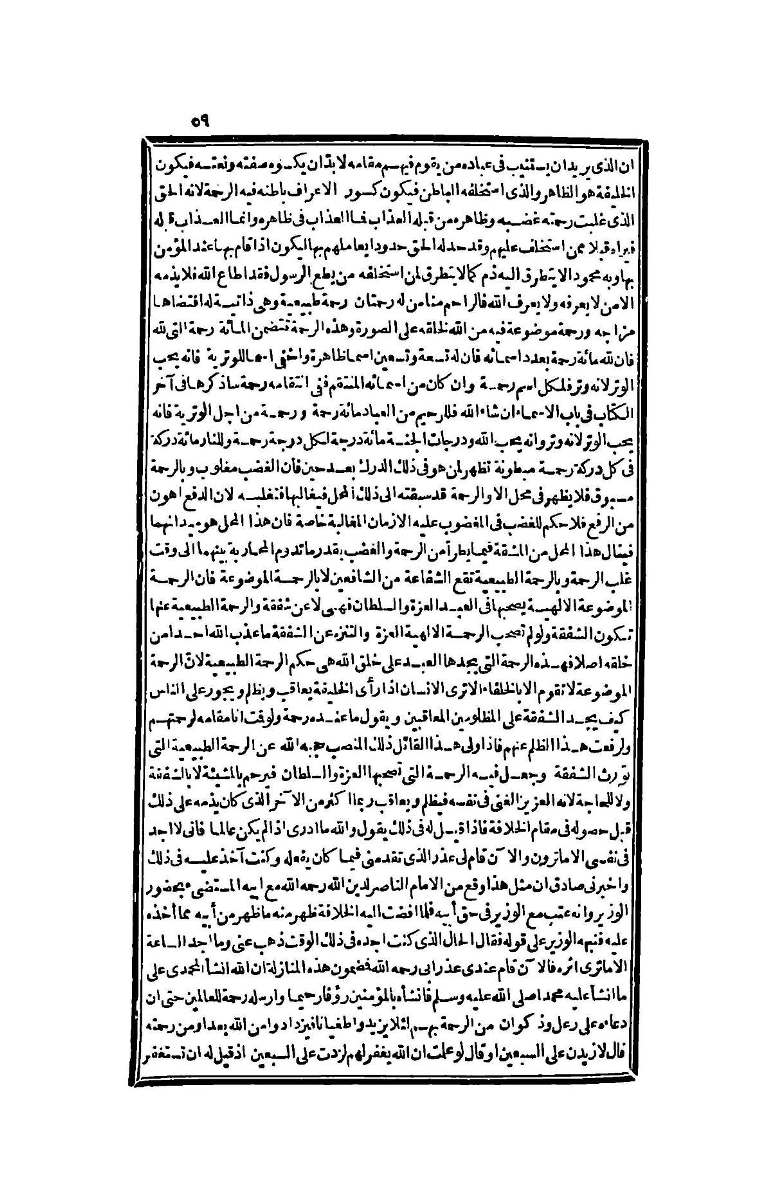 ٥٩
ان الذى يريد ان يستنيب فى عباده من يقوم فيهم مقامه لا بد ان يكسوه صفته ونعته فيكون
الخليفة هو الظاهر والذى استخلفه الباطن فيكون كسور الاعراف باطنه فيه الرحمة لانه الحق
الذى غلبت رحمته غضبه وظاهره من قبله العذاب فما العذاب فى ظاهره وانما العذاب قبله
فيراه قبلا ممن استخلف عليهم وقد حد له الحق حدودا يعاملهم بها ليكون اذا قام بها عند المؤمن
بها وبه محمود الا يتطرق اليه ذم كما لا يتطرق لمن استخلفه من يطع الرسول فقد اطاع الله فلا يذمه
الا من لا يعرفه ولا يعرف الله فالراحم منا من له رحمتان رحمة طبيعية وهى ذاتية له اقتضاها
مزاجه ورحمة موضوعة فيه من الله بخلقه على الصورة وهذه الرحمة تتضمن المائة رحمة التى لله
فان لله مائة رحمة بعدد اسمائه فان له تسعة وتسعين اسما ظاهرة واخفى المائة للوترية فانه يحب
الوتر لانه وتر فلكل اسم رحمة وان كان من اسمائه المنتقم ففى انتقامه رحمة سأذكرها فى آخر
الكتاب فى باب الاسماء ان شاء الله فللرحيم من العباد مائة رحمة ورحمة من اجل الوترية فانه
يحب الوتر لانه وتر وانه يحب الله ودرجات الجنة مائة درجة لكل درجة رحمة وللنار مائة دركة
فى كل دركة رحمة مبطونة تظهر لمن هو فى ذلك الدرك بعد حين فان الغضب مغلوب وبالرحمة
مسبوق فلا يظهر فى محل الا والرحمة قد سبقته الى ذلك المحل فيغالبها فتغلبه لان الدفع اهون
من الرفع فلا حكم للغضب فى المغضوب عليه الا زمان المغالبة خاصة فان هذا المحل هو ميدانهما
فينال هذا المحل من المشقة فيما يطرأ من الرحمة والغضب بقدر ما تدوم المحاربة بينهما الى وقت
غلب الرحمة وبالرحمة الطبيعية تقع الشفاعة من الشافعين لا بالرحمة الموضوعة فان الرحمة
الموضوعة الالهية يصحبها فى العبد العزة والسلطان فهى لا عن شفقة والرحمة الطبيعية عنها
تكون الشفقة ولو لم تصحب الرحمة الالهية العزة والتنزه عن الشفقة ما عذب الله احدا من
خلقه اصلا فهذه الرحمة التى يجدها العبد على خلق الله هى حكم الرحمة الطبيعية لان الرحمة
الموضوعة لا تقوم الا بالخلفاء الا ترى الانسان اذا رأى الخليفة يعاقب ويظلم ويجور على الناس
كيف يجد الشفقة على المظلومين المعاقبين ويقول ما عنده رحمة ولو قت انا مقامه لرحمتهم
ولرفعت هذا الظلم عنهم فاذا ولى هذا القائل ذلك المنصب حجبه الله عن الرحمة الطبيعية التى
تورث الشفقة وجعل فيه الرحمة التى تصحبها العزة والسلطان فيرحم بالمشيئة لا بالشفقة
ولا للحاجة لانه العزيز الغنى فى نفسه فيظلم ويعاقب ربما اكثر من الآخر الذى كان يذمه على ذلك
قبل حصوله فى مقام الخلافة فاذا قيل له فى ذلك يقول والله ما ادرى اذا لم يكن عالما فانى لا اجد
فى نفسى الا ما ترون والآن قام لى عذر الذى تقدمنى فيما كان يفعله وكنت آخذ عليه فى ذلك
واخبرنى صادق ان مثل هذا وقع من الامام الناصر لدين الله رحمه الله مع ابيه المستضى بحضور
الوزير وانه عتب مع الوزير فى حق أبيه فلما افضت اليه الخلافة ظهر منه ما ظهر من أبيه مما أخذه
عليه فنبهه الوزير على قوله فقال الحال الذى كنت اجده فى ذلك الوقت ذهب عنى وما اجد الساعة
الا ما ترى اثره فالآن قام عندى عذر ابى رحمه الله فمضمون هذه المنازلة ان الله انشأ المحمدى على
ما انشأ عليه محمدا صلى الله عليه وسلم فانشأه بالمؤمنين رؤفا رحيما وارسله رحمة للعالمين حتى ان
دعاءه على رعل وذكوان من الرحمة بهم لئلا يزيد واطغيانا فيزدادوا من الله بعدا ومن رحمته
قال لازيدن على السبعين او قال لو علمت ان الله يغفر لهم لزدت على السبعين اذ قيل له ان تستغفر